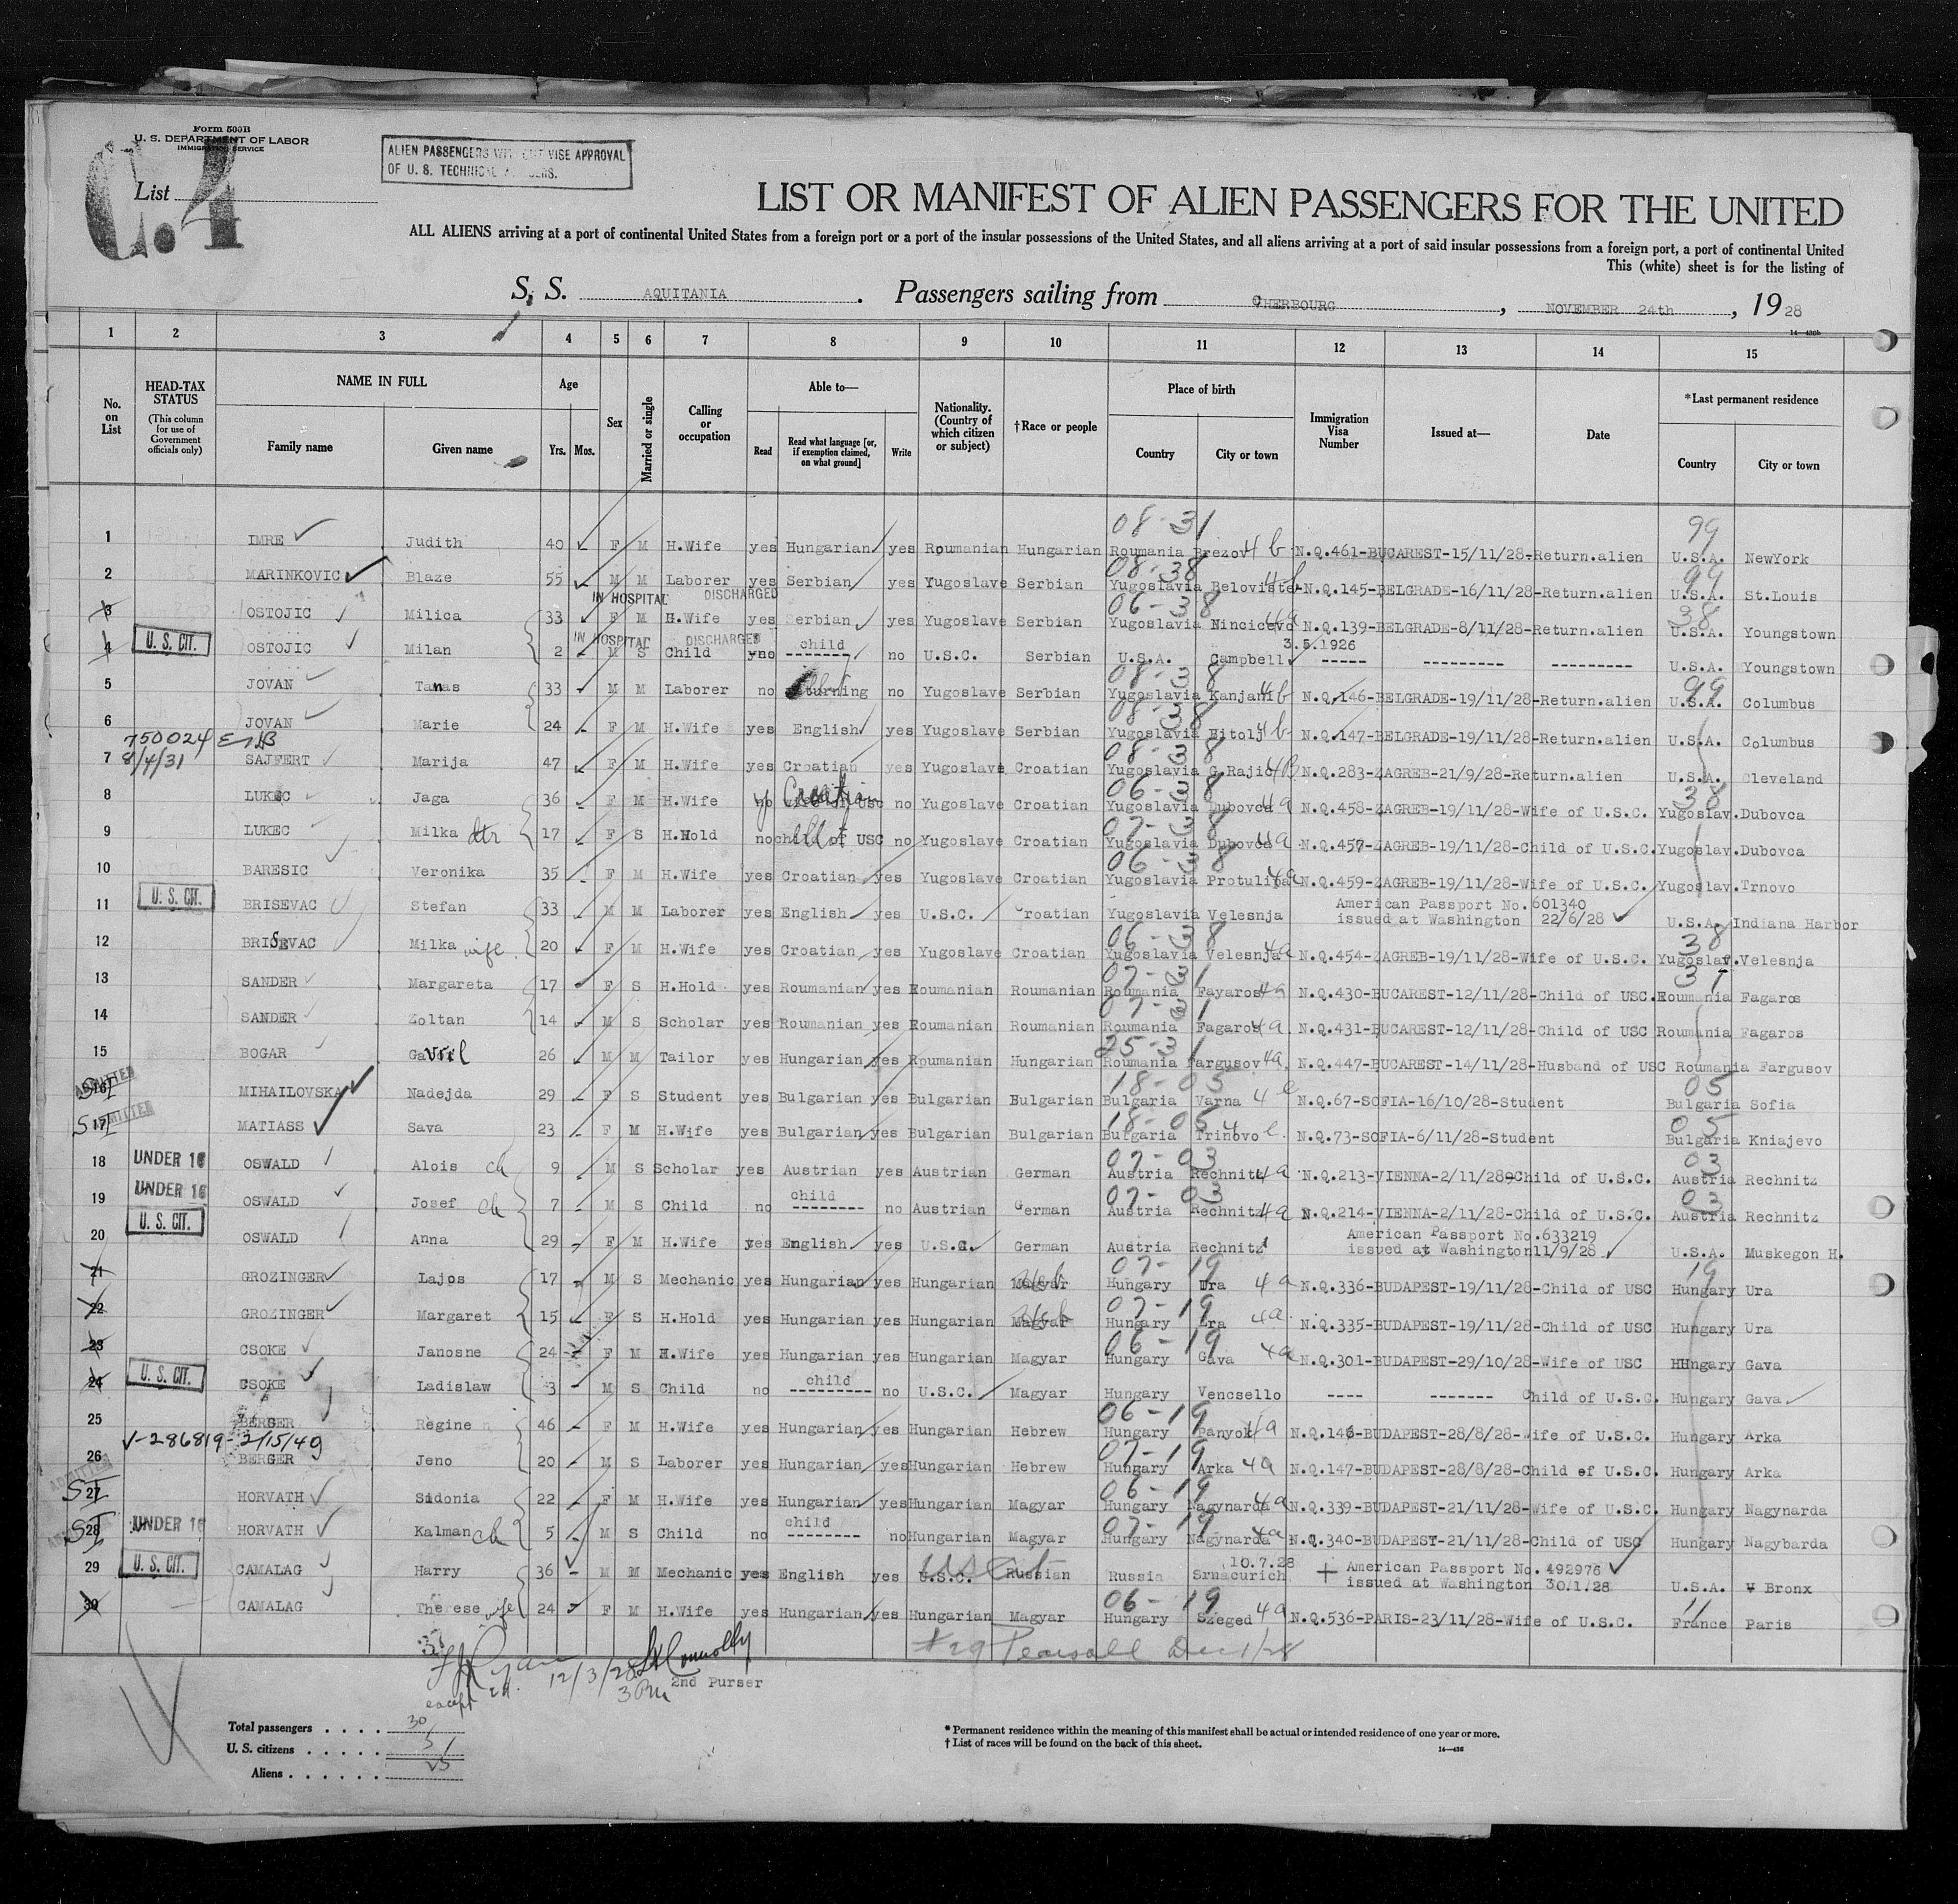 Form 500B
U. S. DEPARTMENT OF LABOR
IMMIGRATION SERVICE
ALIEN PASSENGERS VISE APPROVAL
OF U. S. TECHNICAL
List
C.4
LIST OR MANIFEST OF ALIEN PASSENGERS FOR THE UNITED
ALL ALIENS arriving at a port of continental United States from a foreign port or a port of the insular possessions of the United States, and all aliens arriving at a port of said insular possessions from a foreign port, a port of continental United
This (white) sheet is for the listing of
S. S. AQUITANIA. Passengers sailing from CHERBOURG, NOVEMBER 24th, 1928
14—436b
1 2 3 4 5 6 7 8 9 10 11 12 13 14 15
No. on List
HEAD-TAX STATUS (This column for use of Government officials only)
NAME IN FULL Family name Given name
Age Yrs. Mos.
Sex
Married or single
Calling or occupation
Able to— Read Read what language [or, if exemption claimed, on what ground] Write
Nationality. (Country of which citizen or subject)
†Race or people
Place of birth Country City or town
Immigration Visa Number
Issued at—
Date
*Last permanent residence Country City or town
08-31 99
1 IMRE Judith 40 F M H.Wife yes Hungarian yes Roumanian Hungarian Roumania Brezov 4b N.Q.461-BUCAREST-15/11/28-Return.alien U.S.A. NewYork
08-38 99
2 MARINKOVIC Blaze 55 M M Laborer yes Serbian yes Yugoslave Serbian Yugoslavia N.Q.145-BELGRADE-16/11/28-Return.alien U.S.A. St.Louis
IN HOSPITAL DISCHARGED 06-38 38
3 OSTOJIC Milica 33 F M H.Wife yes Serbian yes Yugoslave Serbian Yugoslavia Nincicevo 4a N.Q.139-BELGRADE-8/11/28-Return.alien U.S.A. Youngstown
U. S. CIT. IN HOSPITAL DISCHARGED child 3.5.1926
4 OSTOJIC Milan 2 M S Child no ------- no U.S.C. Serbian U.S.A. Campbell ----- --------- --------- U.S.A. Youngstown
08-38 99
5 JOVAN Tanas 33 M M Laborer no no Yugoslave Serbian Yugoslavia Kanjani 4b N.Q.146-BELGRADE-19/11/28-Return.alien U.S.A. Columbus
08-38
6 JOVAN Marie 24 F M H.Wife yes English yes Yugoslave Serbian Yugoslavia 4b N.Q.147-BELGRADE-19/11/28-Return.alien U.S.A. Columbus
750024 08-38
7 8/4/31 SAJFERT Marija 47 F M H.Wife yes Croatian yes Yugoslave Croatian Yugoslavia G.Rajic 4B N.Q.283-ZAGREB-21/9/28-Return.alien U.S.A. Cleveland
06-38 38
8 LUKEC Jaga 36 F M H.Wife Croatian no Yugoslave Croatian Yugoslavia Dubovca 4a N.Q.458-ZAGREB-19/11/28-Wife of U.S.C. Yugoslav.Dubovca
07-38
9 LUKEC Milka dtr 17 F S H.Hold no child of USC no Yugoslave Croatian Yugoslavia Dubovca 4a N.Q.457-ZAGREB-19/11/28-Child of U.S.C. Yugoslav.Dubovca
06-38
10 BARESIC Veronika 35 F M H.Wife yes Croatian yes Yugoslave Croatian Yugoslavia Protulipa 4a N.Q.459-ZAGREB-19/11/28-Wife of U.S.C. Yugoslav.Trnovo
U. S. CIT. American Passport No.601340
11 BRISEVAC Stefan 33 M M Laborer yes English yes U.S.C. Croatian Yugoslavia Velesnja issued at Washington 22/6/28 U.S.A. Indiana Harbor
06-38 38
12 BRISEVAC Milka wife 20 F M H.Wife yes Croatian yes Yugoslave Croatian Yugoslavia Velesnja 4a N.Q.454-ZAGREB-19/11/28-Wife of U.S.C. Yugoslav.Velesnja
07-31 31
13 SANDER Margareta 17 F S H.Hold yes Roumanian yes Roumanian Roumanian Roumania Fayaros 4a N.Q.430-BUCAREST-12/11/28-Child of USC. Roumania Fagaros
07-31
14 SANDER Zoltan 14 M S Scholar yes Roumanian yes Roumanian Roumanian Roumania Fagaros 4a N.Q.431-BUCAREST-12/11/28-Child of USC Roumania Fagaros
25-31
15 BOGAR Gavril 26 M M Tailor yes Hungarian yes Roumanian Hungarian Roumania Fargusov 4a N.Q.447-BUCAREST-14/11/28-Husband of USC Roumania Fargusov
ADMITTED SI 18-05 05
16 MIHAILOVSKA Nadejda 29 F S Student yes Bulgarian yes Bulgarian Bulgarian Bulgaria Varna 4e N.Q.67-SOFIA-16/10/28-Student Bulgaria Sofia
ADMITTED SI 18-05 05
17 MATIASS Sava 23 F M H.Wife yes Bulgarian yes Bulgarian Bulgarian Bulgaria Trinovo 4e N.Q.73-SOFIA-6/11/28-Student Bulgaria Kniajevo
UNDER 16 07-03 03
18 OSWALD Alois ch 9 M S Scholar yes Austrian yes Austrian German Austria Rechnitz 4a N.Q.213-VIENNA-2/11/28-Child of U.S.C. Austria Rechnitz
UNDER 16 child 07-03 03
19 OSWALD Josef ch 7 M S Child no -------- no Austrian German Austria Rechnitz 4a N.Q.214-VIENNA-2/11/28-Child of U.S.C. Austria Rechnitz
U. S. CIT. American Passport No.633219
20 OSWALD Anna 29 F M H.Wife yes English yes U.S.C. German Austria Rechnitz issued at Washington 11/9/28 U.S.A. Muskegon H.
07-19 19
21 GROZINGER Lajos 17 M S Mechanic yes Hungarian yes Hungarian Magyar Hungary Ura 4a N.Q.336-BUDAPEST-19/11/28-Child of USC Hungary Ura
07-19
22 GROZINGER Margaret 15 F S H.Hold yes Hungarian yes Hungarian Magyar Hungary Ura 4a N.Q.335-BUDAPEST-19/11/28-Child of USC Hungary Ura
06-19
23 CSOKE Janosne 24 F M H.Wife yes Hungarian yes Hungarian Magyar Hungary Gava 4a N.Q.301-BUDAPEST-29/10/28-Wife of USC HUngary Gava
U. S. CIT. child
24 CSOKE Ladislaw 3 M S Child no --------- no U.S.C. Magyar Hungary Vencsello ---- ------- Child of U.S.C. Hungary Gava
06-19
25 BERGER Regine 46 F M H.Wife yes Hungarian yes Hungarian Hebrew Hungary Panyok 4a N.Q.146-BUDAPEST-28/8/28-Wife of U.S.C. Hungary Arka
V-286819-2/15/49 07-19
26 BERGER Jeno 20 M S Laborer yes Hungarian yes Hungarian Hebrew Hungary Arka 4a N.Q.147-BUDAPEST-28/8/28-Child of U.S.C. Hungary Arka
ADMITTED SI 06-19
27 HORVATH Sidonia 22 F M H.Wife yes Hungarian yes Hungarian Magyar Hungary Nagynarda 4a N.Q.339-BUDAPEST-21/11/28-Wife of U.S.C. Hungary Nagynarda
SI UNDER 16 child 07-19
28 HORVATH Kalman ch 5 M S Child no -------- no Hungarian Magyar Hungary Nagynarda 4a N.Q.340-BUDAPEST-21/11/28-Child of USC Hungary Nagybarda
U. S. CIT. 10.7.28 American Passport No. 492976
29 CAMALAG Harry 36 M M Mechanic yes English yes U.S.C. Russian Russia Srnacurich issued at Washington 30/1/28 U.S.A. Bronx
06-19 11
30 CAMALAG Therese wife 24 F M H.Wife yes Hungarian yes Hungarian Magyar Hungary Szeged 4a N.Q.536-PARIS-23/11/28-Wife of U.S.C. France Paris
#29 Pearsall Dec 1/28
Ryan 12/3/28 Connolly
except 29. 3 PM 2nd Purser
Total passengers . . . . 30
U. S. citizens . . . . . 5
Aliens . . . . . . 25
* Permanent residence within the meaning of this manifest shall be actual or intended residence of one year or more.
† List of races will be found on the back of this sheet.
14—436